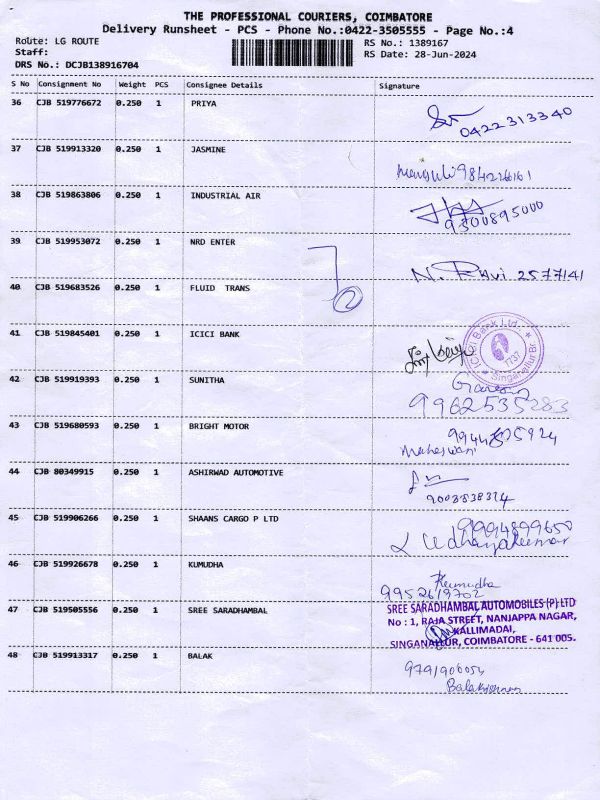 THE PROFESSIONAL COURIERS, COIMBATORE
Delivery Runsheet - PCS - Phone No.:0422-3505555 - Page No.:4
Route: LG ROUTE
RS No.: 1389167
Staff:
RS Date: 28-Jun-2024
DRS No.: DCJB138916704
S No Consignment No Weight PCS Consignee Details Signature
36 CJB 519776672 0.250 1 PRIYA
0422313340
37 CJB 519913320 0.250 1 JASMINE
38 CJB 519863806 0.250 1 INDUSTRIAL AIR
9300895000
39 CJB 519953072 0.250 1 NRD ENTER
N. Ravi 2577141
40 CJB 519683526 0.250 1 FLUID TRANS
2
41 CJB 519845401 0.250 1 ICICI BANK
ICICI Bank Ltd.
1737
Singanallur Br.
42 CJB 519919393 0.250 1 SUNITHA
9962535283
43 CJB 519680593 0.250 1 BRIGHT MOTOR
Maheswari
44 CJB 80349915 0.250 1 ASHIRWAD AUTOMOTIVE
45 CJB 519906266 0.250 1 SHAANS CARGO P LTD
9994899650
46 CJB 519926678 0.250 1 KUMUDHA
Kumudha
9952619702
47 CJB 519505556 0.250 1 SREE SARADHAMBAL
SREE SARADHAMBAL AUTOMOBILES (P) LTD
No : 1, RAJA STREET, NANJAPPA NAGAR,
KALLIMADAI,
SINGANALLUR, COIMBATORE - 641 005.
48 CJB 519913317 0.250 1 BALAK
9791906054